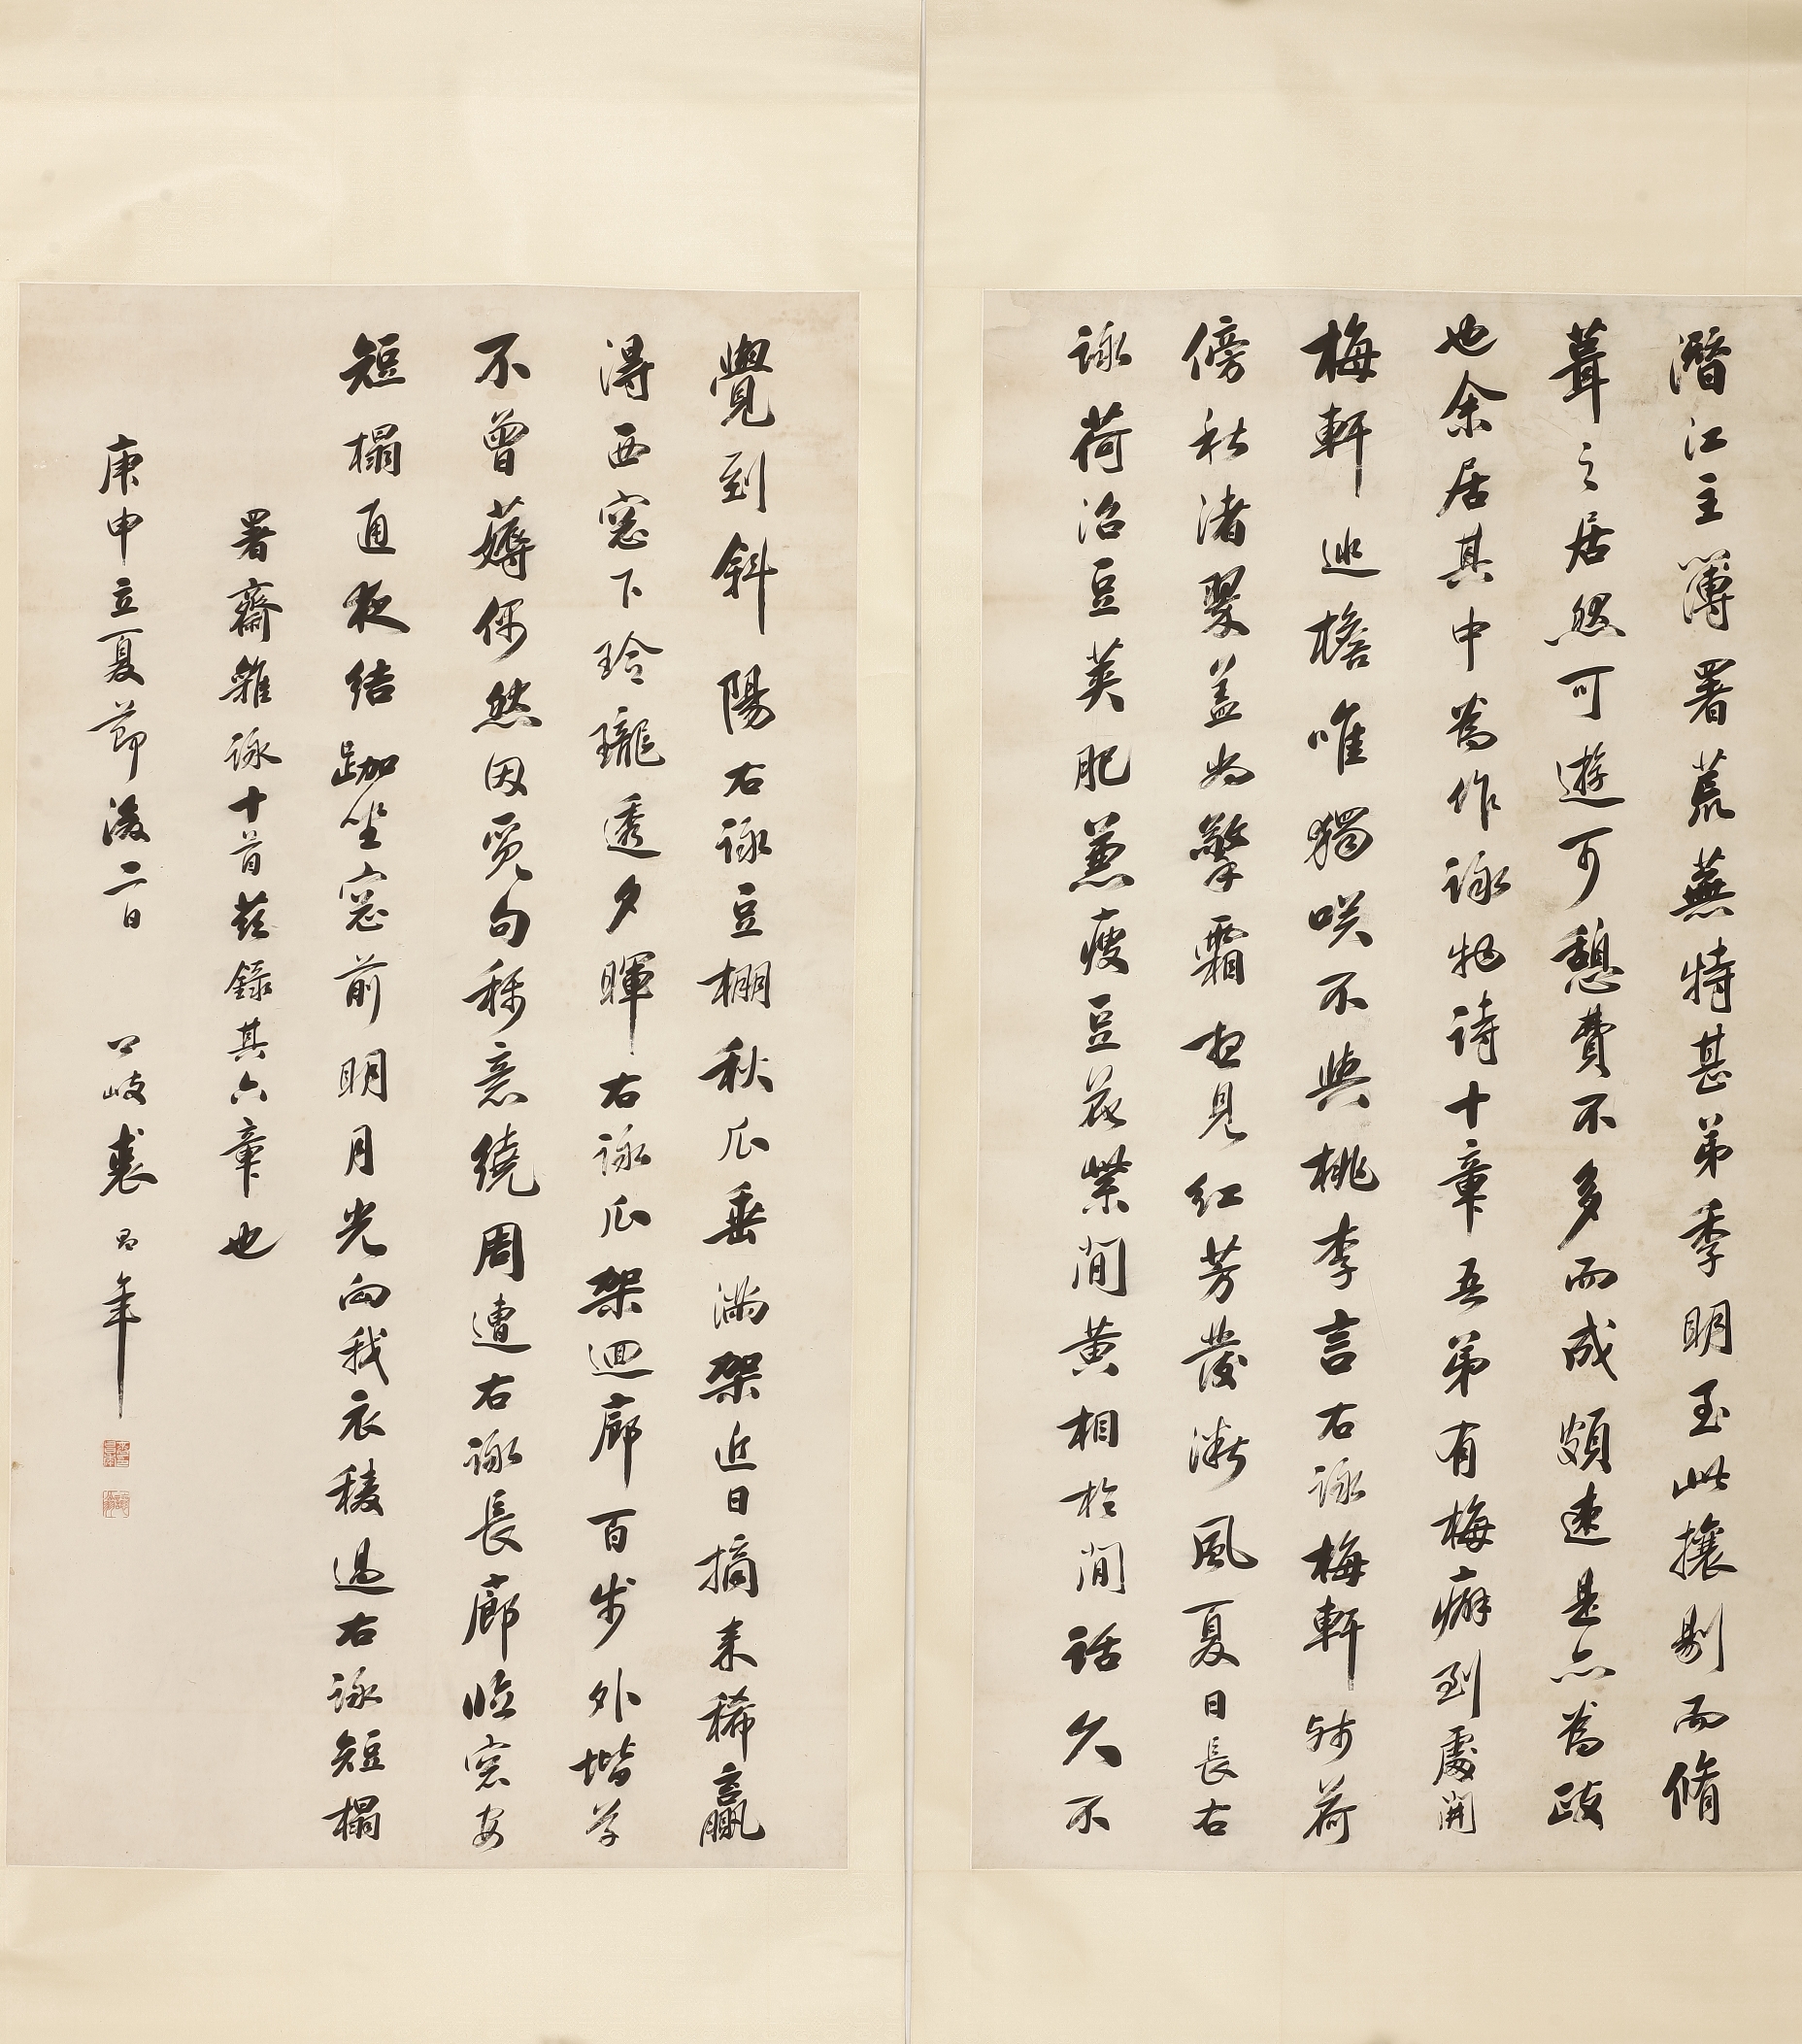 潛江主簿署荒蕪特甚弟季明至此攘剔而脩
葺之居然可遊可憩費不多而成頗速是亦為政
也余居其中為作詠物詩十章吾弟有梅癖到處開
梅軒巡檐唯獨咲不與桃李言右詠梅軒蒔荷
傍秋渚翠盖為擎霜想見紅芳發微風夏日長右
詠荷沼豆莢肥葱瘦豆花紫間黄相於閒話久不
覺到斜陽右詠豆棚秋瓜垂滿架近日摘来稀贏
得西窓下玲瓏透夕暉右詠瓜架迴廊百步外堦草
不曾薅偶然因覓句稱意繞周遭右詠長廊臨窓安
短榻通夜结跏坐窓前明月光向我衣稜過右詠短榻
署齋雜詠十首茲錄其六章也
庚申立夏節後二日 岐裘 年